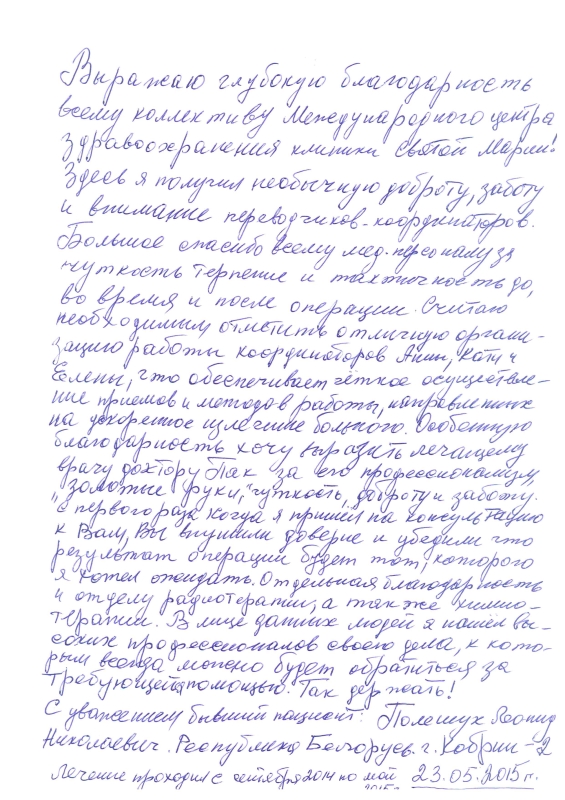 Выражаю глубокую благодарность
всему коллективу Международного центра
Здравоохранения клиники Святой Марии!
Здесь я получил необычную доброту, заботу
и внимание переводчиков-координаторов.
Большое спасибо всему мед. персоналу за
чуткость терпение и тактичность до,
во время и после операции. Считаю
необходимым отметить отличную органи-
зацию работы координаторов Анны, Кати и
Елены, что обеспечивает чёткое осуществле-
ние приемов и методов работы, направленных
на ускоренное излечение больного. Особенную
благодарность хочу выразить лечащему
врачу доктору Пак за его профессионализм,
"золотые руки," чуткость, доброту и заботу.
С первого раза когда я пришел на консультацию
к Вам, Вы внушили доверие и убедили что
результат операции будет тот, которого
я хотел ожидать. Отдельная благодарность
и отделу радиотерапии, а так же химио-
терапии. В лице данных людей я нашел вы-
соких профессионалов своего дела, к кото-
рым всегда можно будет обратиться за
требующейся помощью. Так держать!
С уважением бывший пациент: Полещук Леонид
Николаевич. Республика Беларусь. г. Кобрин - 2
Лечение проходил с сентября 2014 по май 23.05.2015 г.
2015 г.